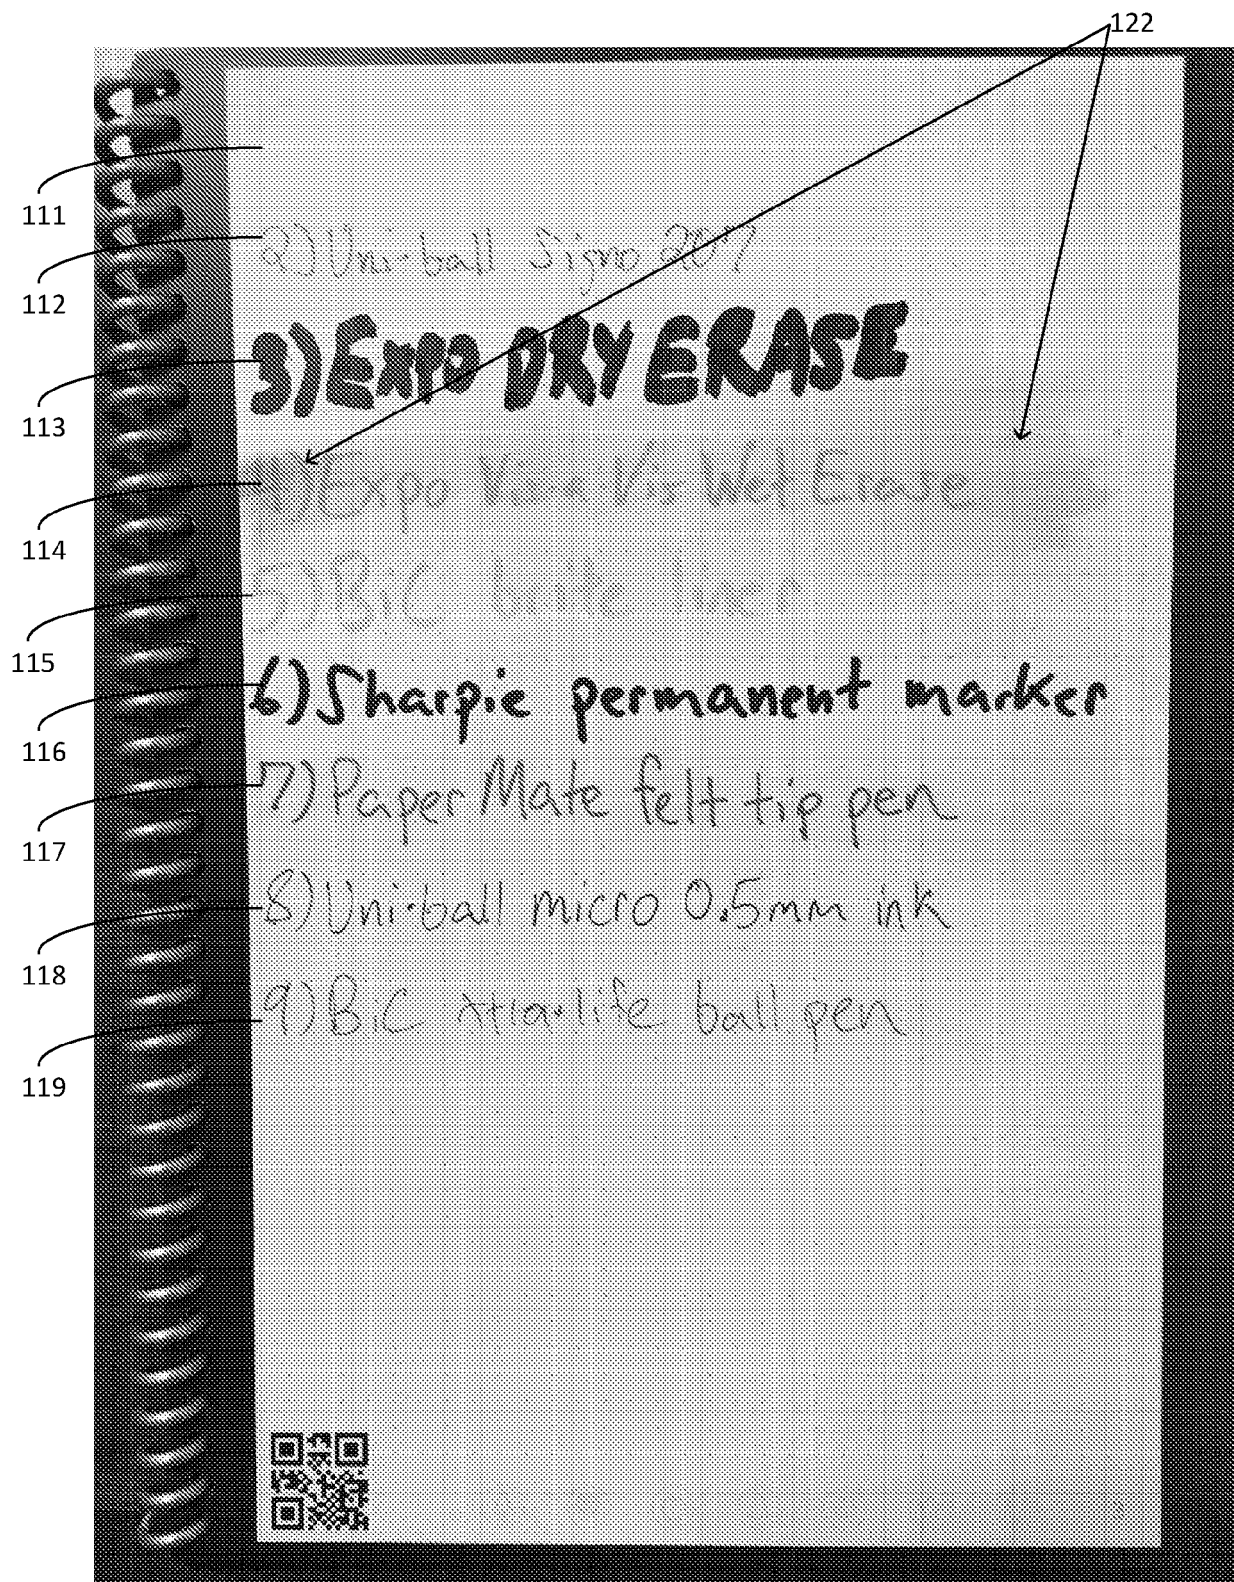 122
111
2) Uni-ball Signo 207
112
3) EXPO DRY ERASE
113
4) Expo Vis-à-Vis Wet Erase
114
5) BiC brite liner
115
6) Sharpie permanent marker
116
7) Paper Mate felt tip pen
117
8) Uni-ball micro 0.5mm ink
118
9) BiC xtra-life ball pen
119